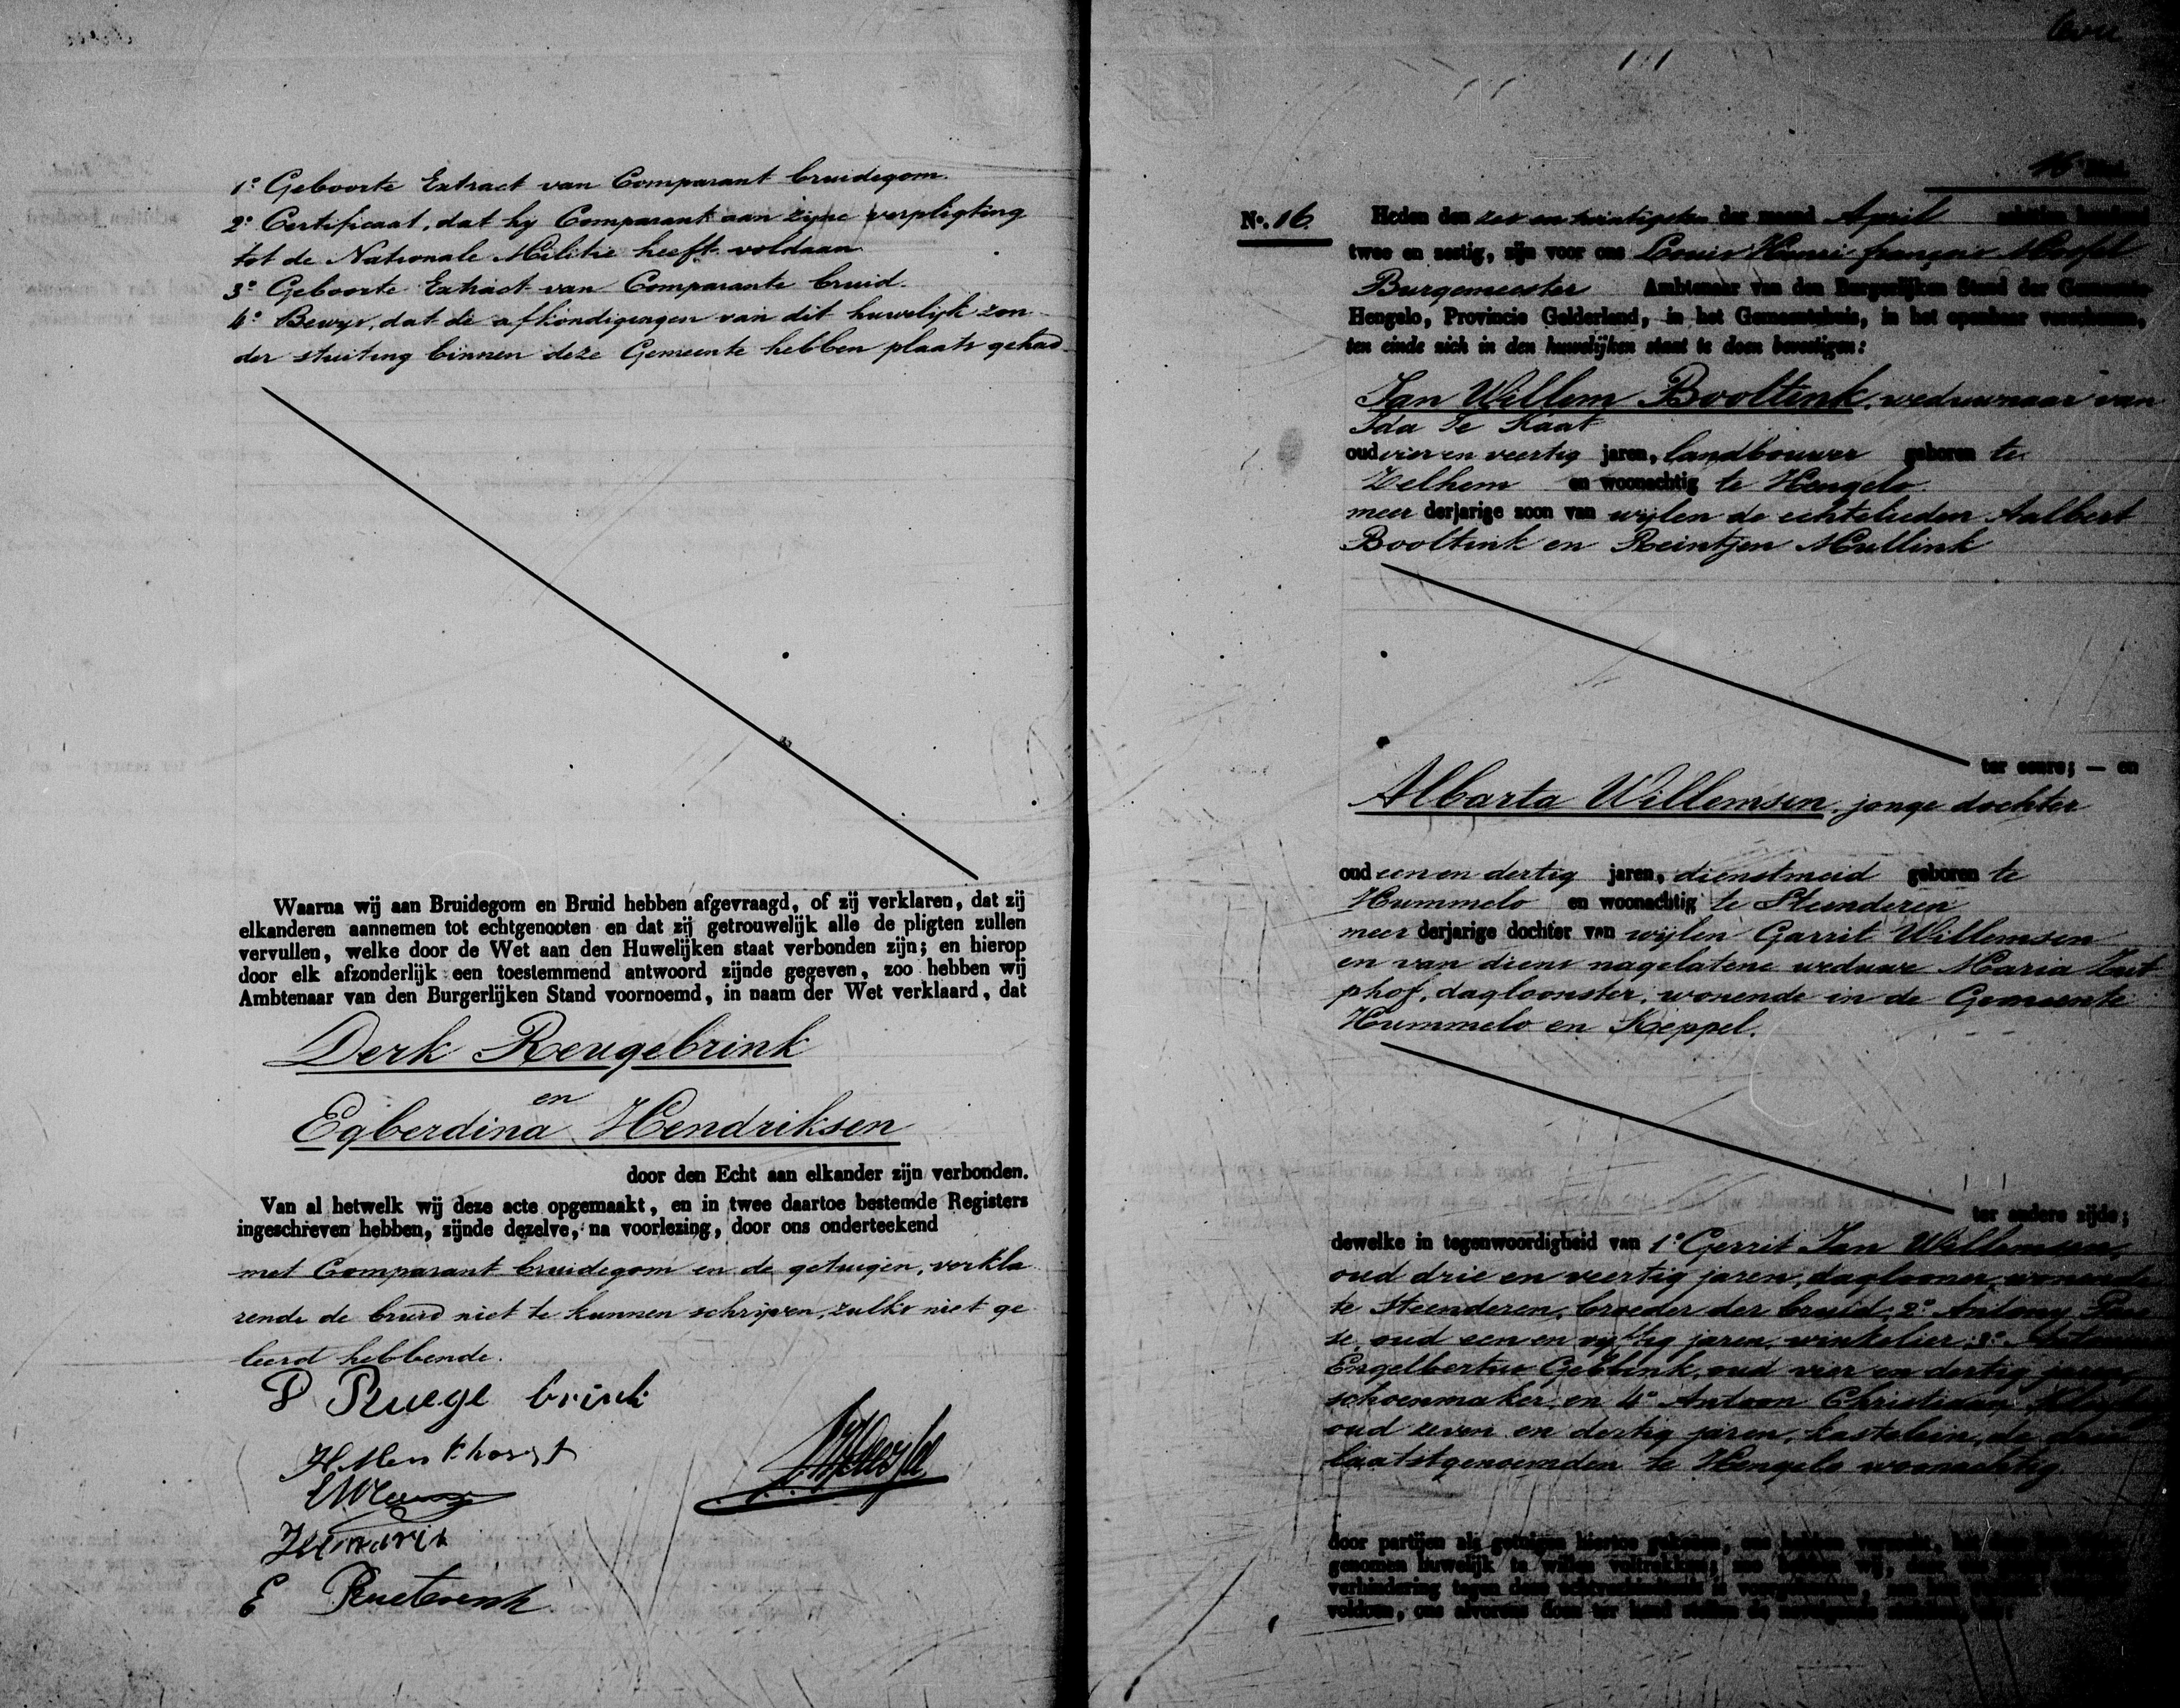 1º Geboorte Extract van Comparant bruidegom.
2º Certificaat, dat hy Comparant aan zijne verpligting
tot de Nationale Militie heeft voldaan
3º Geboorte Extract van Comparante bruid.
4º Bewys, dat de afkondigingen van dit huwelijk zon
der stuiting binnen deze Gemeente hebben plaats gehad
Waarna wij aan Bruidegom en Bruid hebben afgevraagd, of zij verklaren, dat zij
elkanderen aannemen tot echtgenooten en dat zij getrouwelijk alle de pligten zullen
vervullen, welke door de Wet aan den Huwelijken staat verbonden zijn; en hierop
door elk afzonderlijk een toestemmend antwoord zijnde gegeven, zoo hebben wij
Ambtenaar van den Burgerlijken Stand voornoemd, in naam der Wet verklaard, dat
Derk Reugebrink
en
Egberdina Hendriksen
door den Echt aan elkander zijn verbonden.
Van al hetwelk wij deze acte opgemaakt, en in twee daartoe bestemde Registers
ingeschreven hebben, zijnde dezelve, na voorlezing, door ons onderteekend
met Comparant bruidegom en de getuigen, verkla
rende de bruid niet te kunnen schrijven, zulks niet ge
leerd hebbende.
Ruege brink
H Menkhorst
E
16
No. 16.
Heden den zes en twintigsten der maand April achttien honderd
twee en zestig, zijn voor ons Louis Henri françois
Burgemeester Ambtenaar van den Burgerlijken Stand der Gemeente
Hengelo, Provincie Gelderland, in het Gemeentehuis, in het openbaar verschenen,
ten einde zich in den huwelijken staat te doen bevestigen:
Jan Willem Booltink, weduwnaar van
Ida Te Kaat
oud vier en veertig jaren, landbouwer geboren te
Zelhem en woonachtig te Hengelo.
meer derjarige zoon van wijlen de echtelieden Aalbert
Booltink en Reintjen Mullink
ter eenre; — en
Albarta Willemsen, jonge dochter
oud een en dertig jaren, dienstmeid geboren te
Hummelo en woonachtig te Steenderen
meer derjarige dochter van wijlen Garrit Willemsen
en van diens nagelatene weduwe Maria Zut
phof, dagloonster, wonende in de Gemeente
Hummelo en Keppel.
ter andere zijde;
dewelke in tegenwoordigheid van 1º Gerrit Jan Willemsen,
oud drie en veertig jaren, daglooner, wonende
te Steenderen, broeder der bruid, 2º Antony
se, oud een en vijftig jaren, winkelier, 3º
Engelbertus Gebbink, oud vier en dertig jaren
schoenmaker, en 4º Antoon Christiaan
oud zeven en dertig jaren, kastelein, de drie
laatstgenoemden te Hengelo woonachtig.
door partijen als getuigen hiertoe gekozen, ons hebben verzocht, het
genomen huwelijk te willen voltrekken; zoo hebben wij,
verhindering tegen deze
voldoen, ons alvorens doen ter hand stellen de